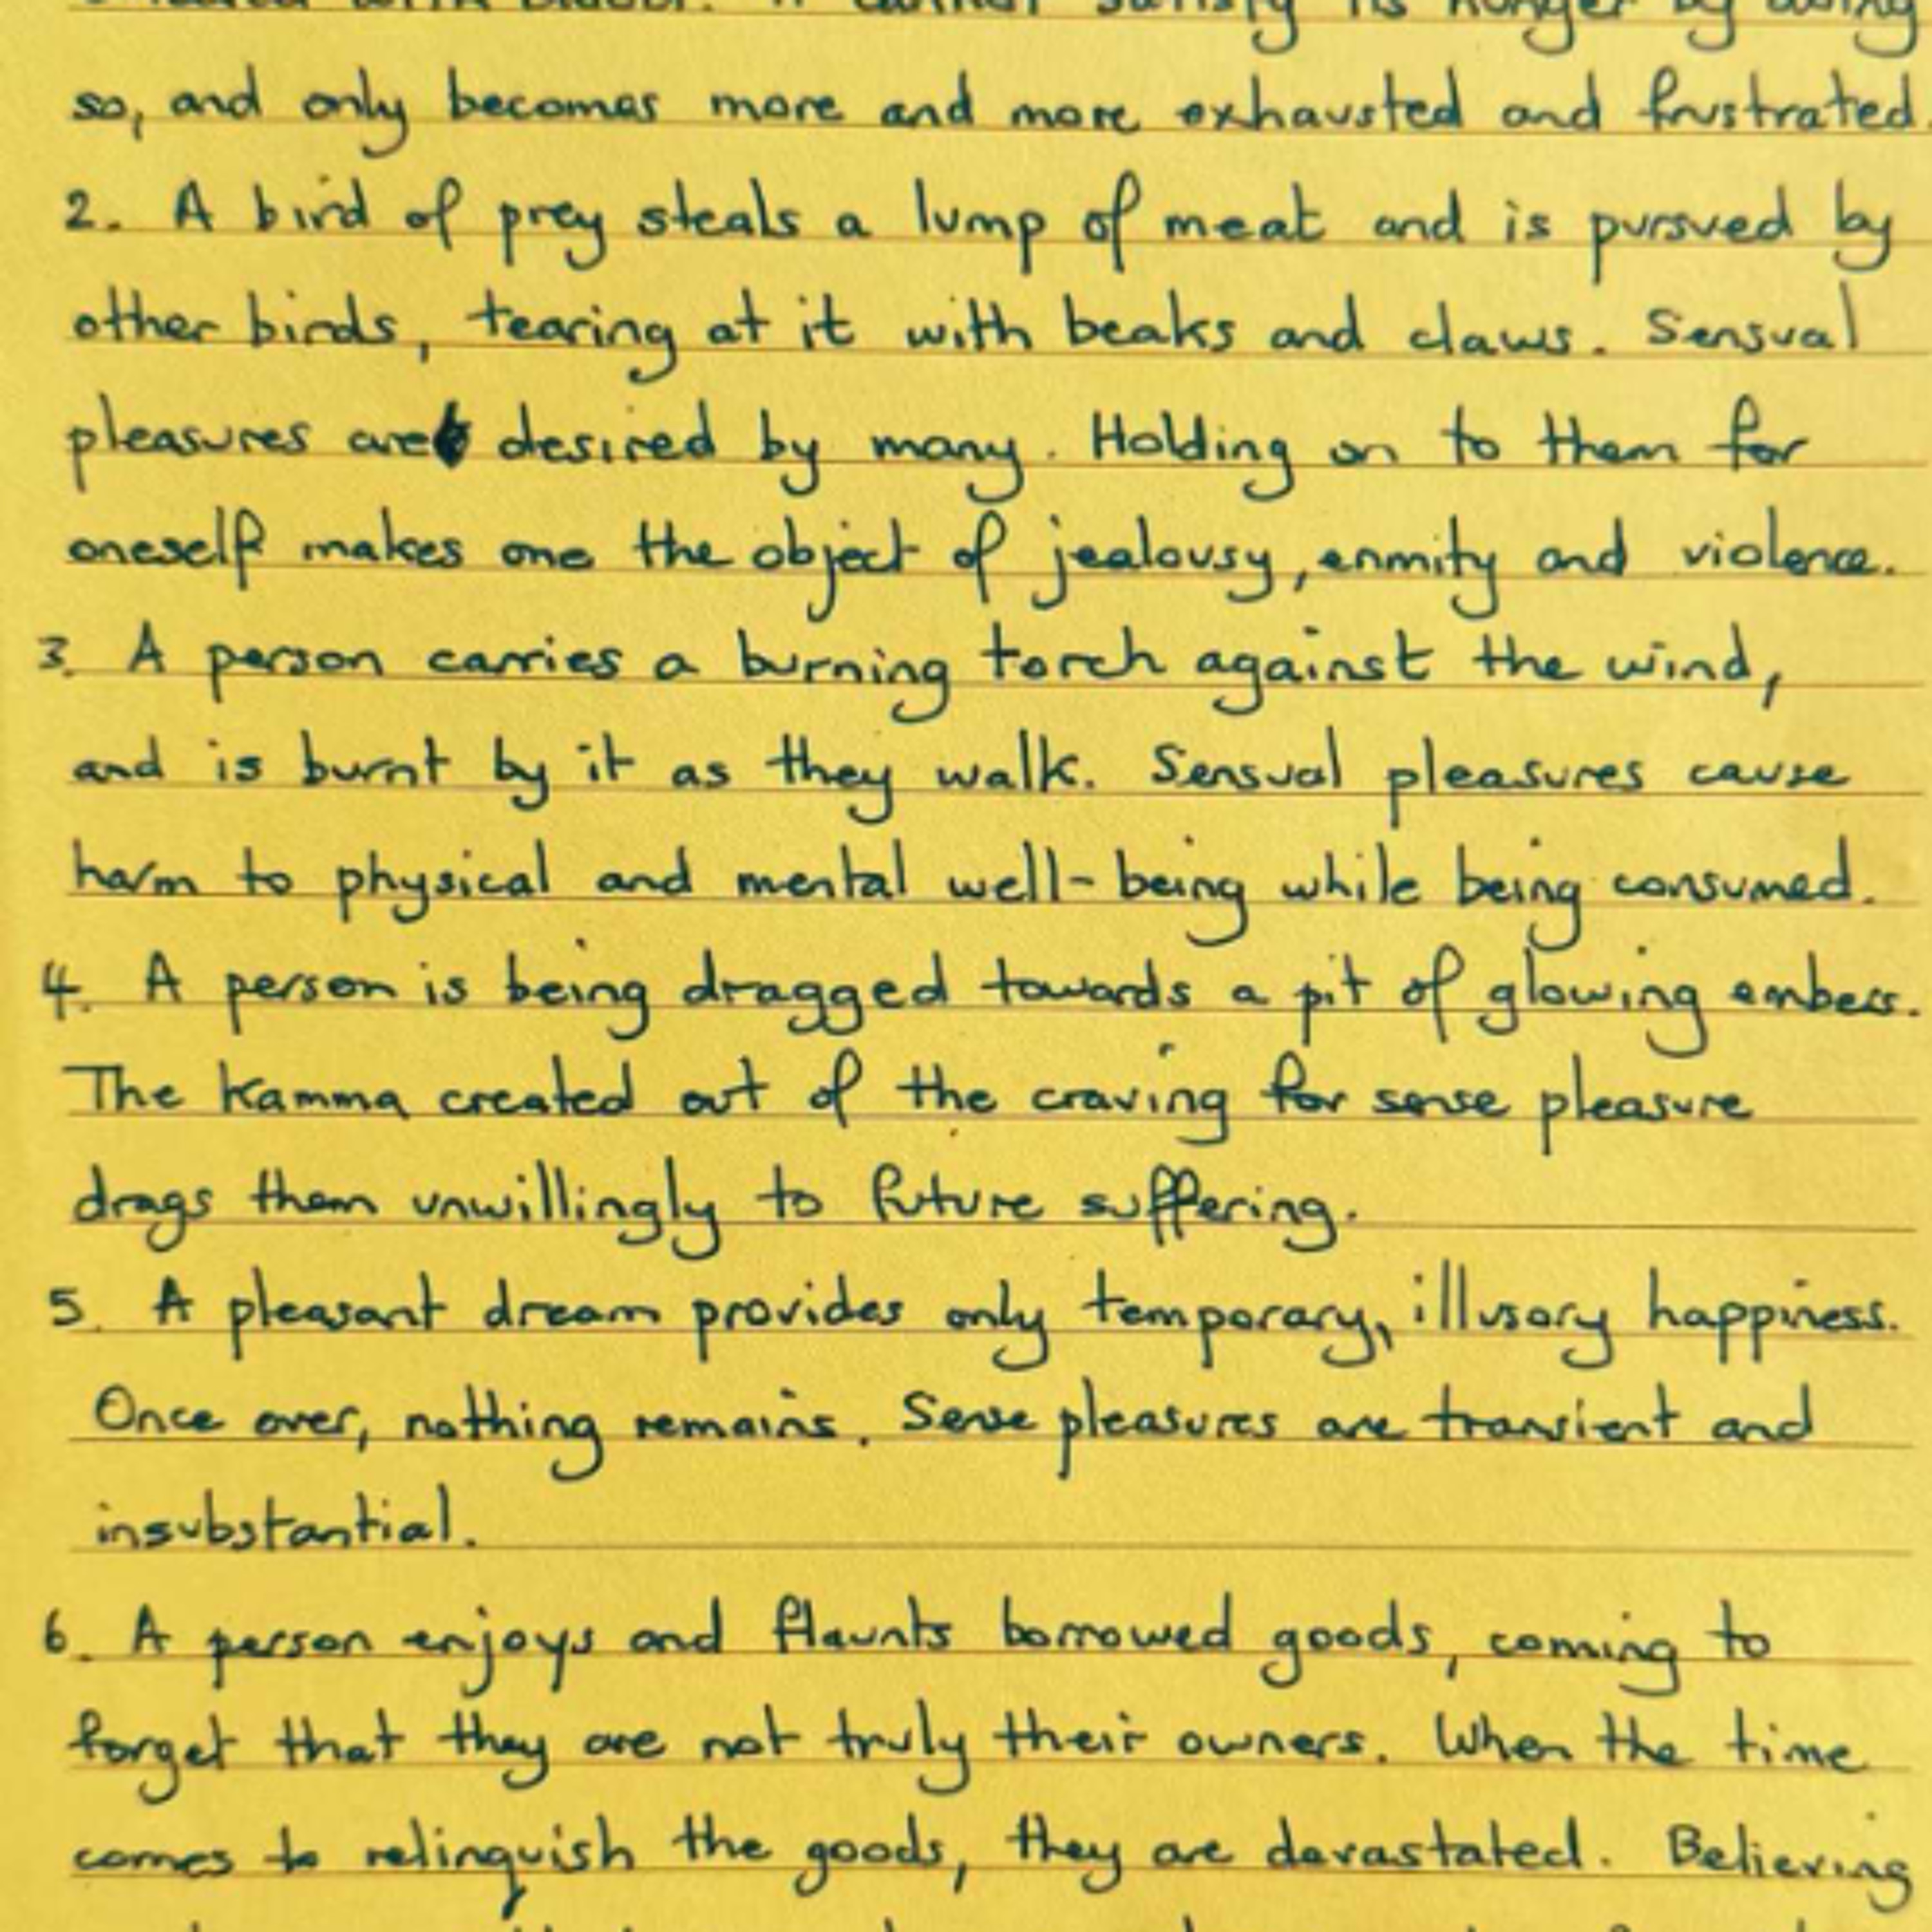 smeared with blood. It cannot satisfy its hunger by doing
so, and only becomes more and more exhausted and frustrated.
2. A bird of prey steals a lump of meat and is pursued by
other birds, tearing at it with beaks and claws. Sensual
pleasures are desired by many. Holding on to them for
oneself makes one the object of jealousy, enmity and violence.
3. A person carries a burning torch against the wind,
and is burnt by it as they walk. Sensual pleasures cause
harm to physical and mental well-being while being consumed.
4. A person is being dragged towards a pit of glowing embers.
The kamma created out of the craving for sense pleasure
drags them unwillingly to future suffering.
5. A pleasant dream provides only temporary, illusory happiness.
Once over, nothing remains. Sense pleasures are transient and
insubstantial.
6. A person enjoys and flaunts borrowed goods, coming to
forget that they are not truly their owners. When the time
comes to relinquish the goods, they are devastated. Believing